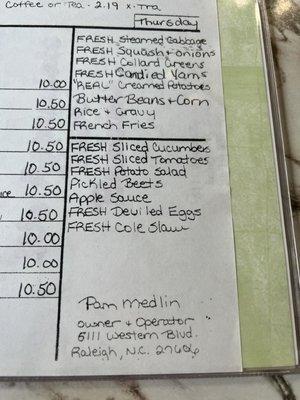 Coffee or Tea - 2.19 x-tra
Thursday
FRESH Steamed Cabbage
FRESH Squash + onions
FRESH Collard Greens
FRESH Candied Yams
10.00 "REAL" Creamed Potatoes
10.50 Butter Beans + Corn
10.50 Rice + Gravy
French Fries
10.50 FRESH Sliced Cucumbers
FRESH Sliced Tomatoes
10.50 FRESH Potato Salad
Pickled Beets
10.50 Apple Sauce
10.50 FRESH Deviled Eggs
10.00 FRESH Cole Slaw
10.00
10.50
Pam Medlin
owner + Operator
5111 Western Blvd.
Raleigh, N.C. 27606